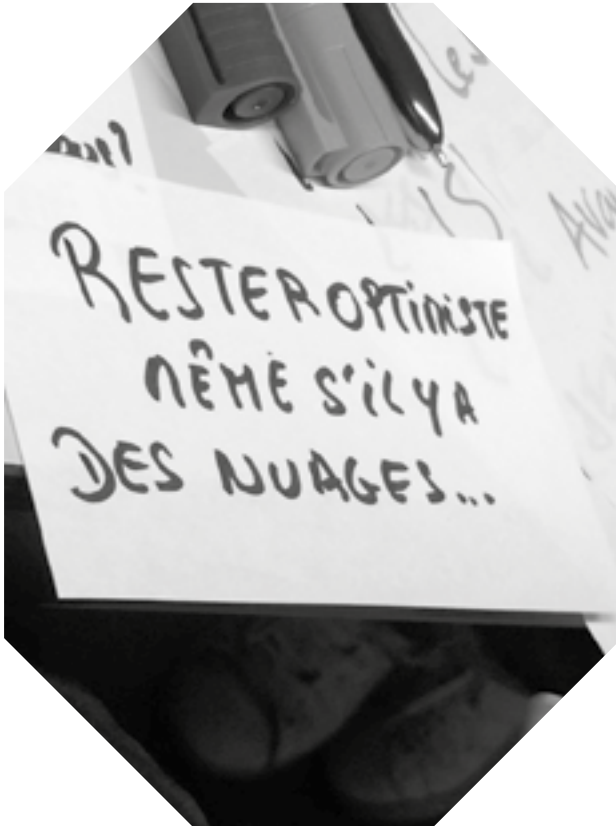 RESTER OPTIMISTE
MÊME S'IL Y A
DES NUAGES...